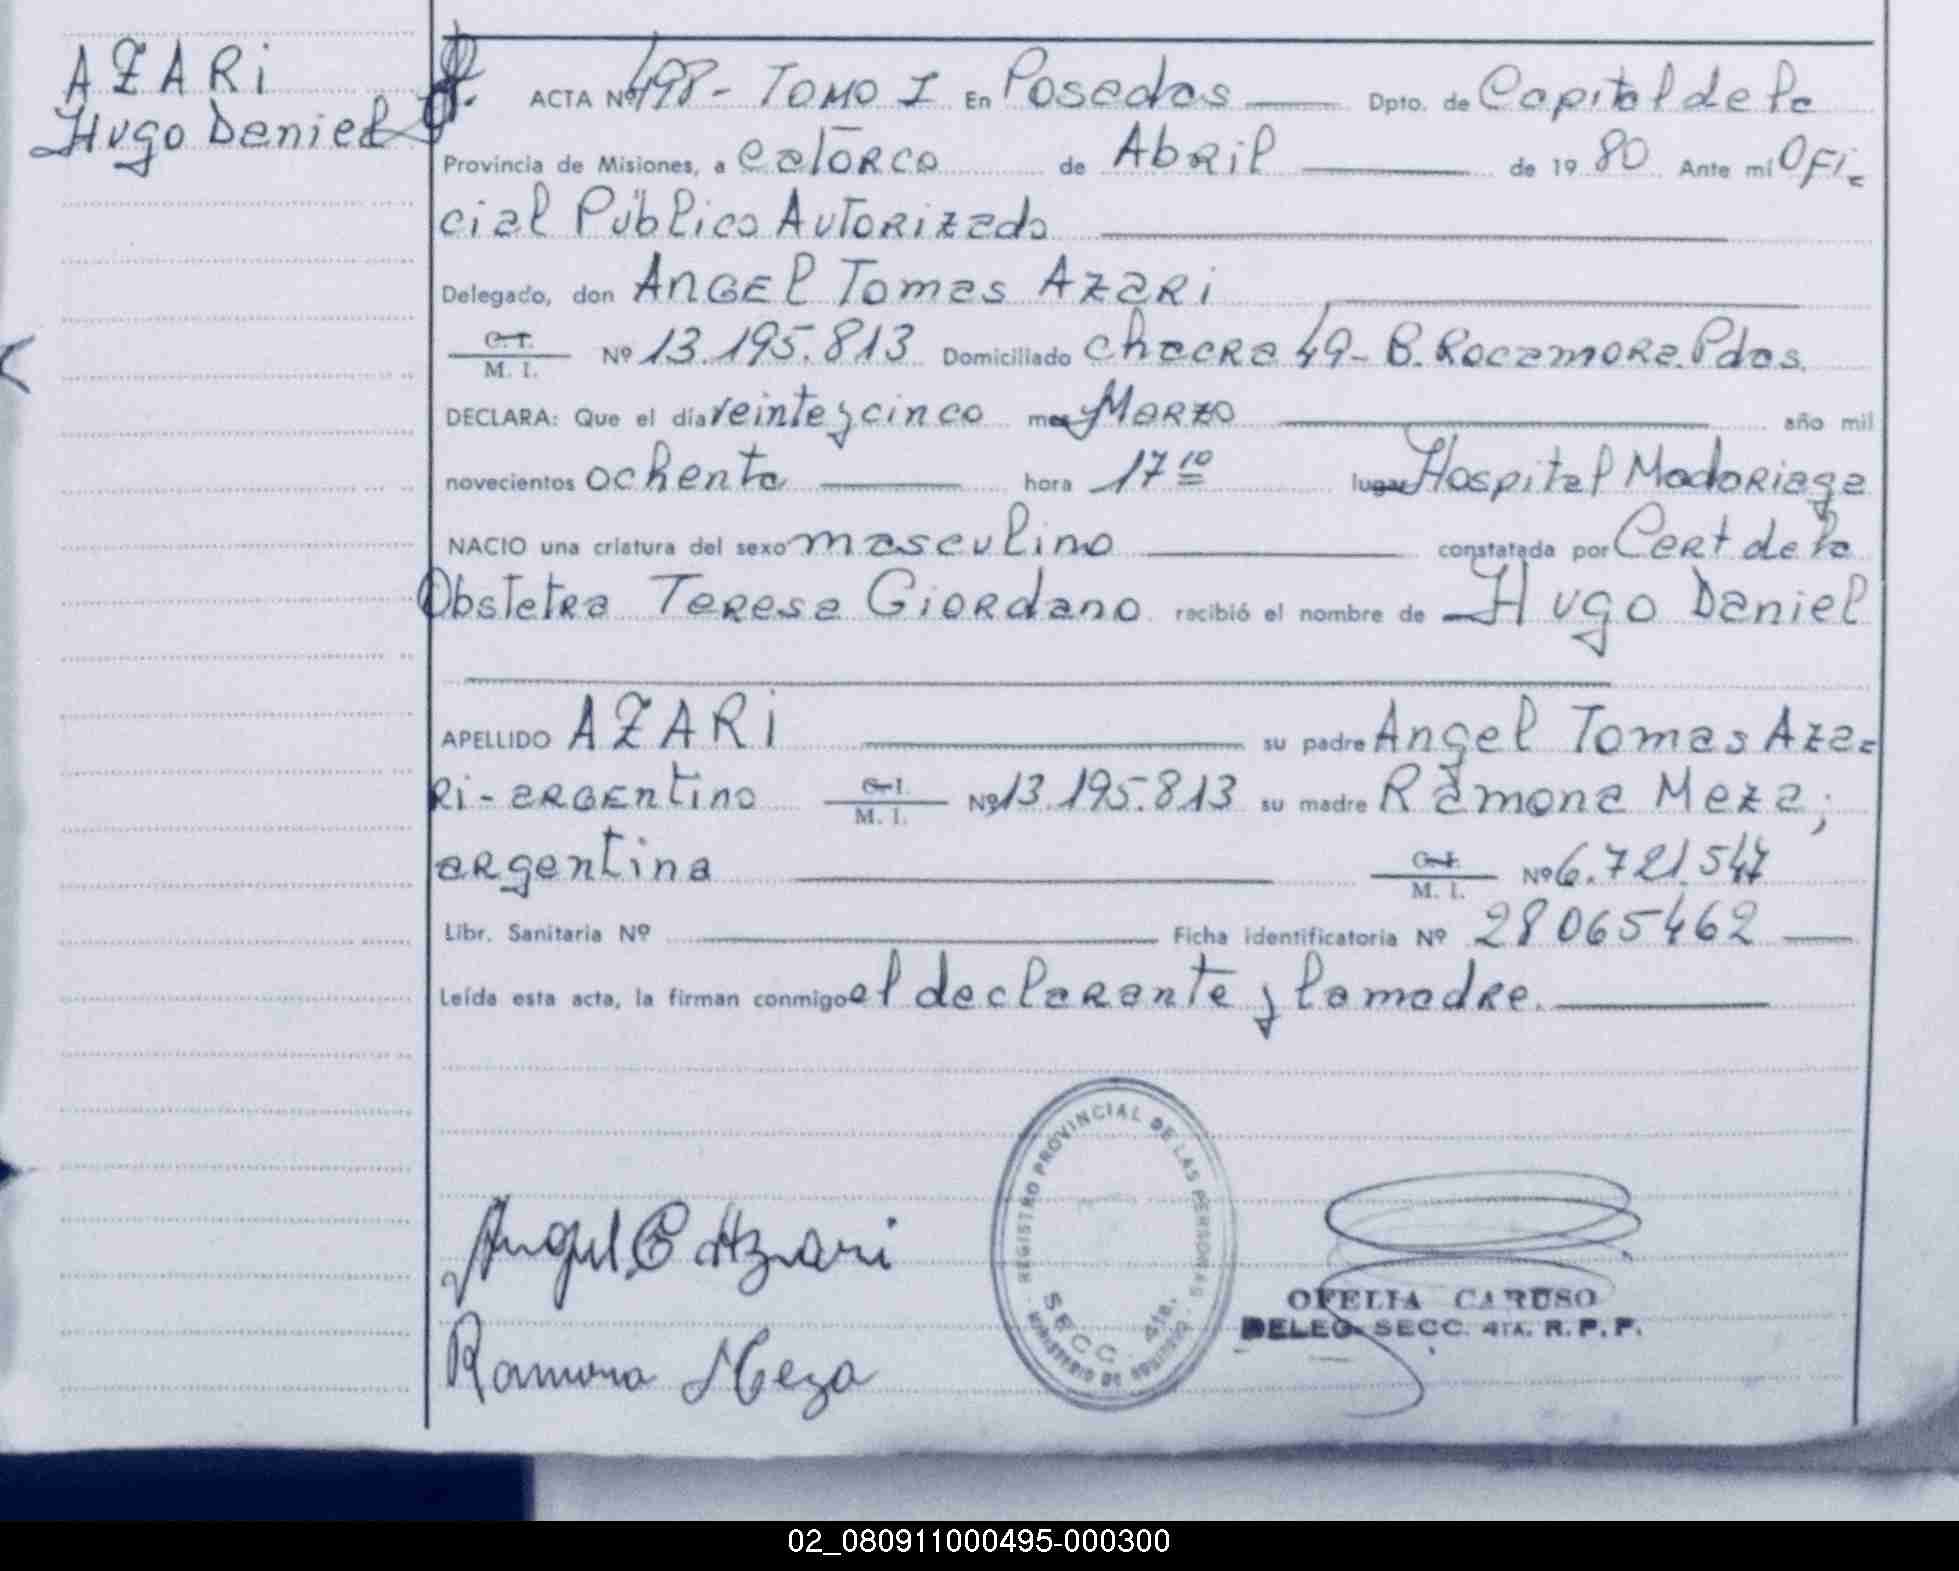 AZARi
Hugo Daniel
ACTA Nº 498 - Tomo I En Posadas Dpto. de Capital de la
Provincia de Misiones, a catorce de Abril de 19 80 Ante mí Ofi-
cial Público Autorizado
Delegado, don Angel Tomas Azari
C. I. M. I. Nº 13.195.813 Domiciliado chacra 49- B. Rocamora. Pdas.
DECLARA: Que el día veinte y cinco mes Marzo año mil
novecientos ochenta hora 17 10 lugar Hospital Madariaga
NACIO una criatura del sexo masculino constatada por Cert de la
Obstetra Teresa Giordano recibió el nombre de Hugo Daniel
APELLIDO AZARi su padre Angel Tomas Aza-
Ri - argentino C. I. M. I. Nº 13.195.813 su madre Ramona Meza,
argentina C. I. M. I. Nº 6.721.547
Libr. Sanitaria Nº Ficha identificatoria Nº 28065462
Leída esta acta, la firman conmigo el declarante y la madre.
REGISTRO PROVINCIAL DE LAS PERSONAS
SECC. 4ta.
MINISTERIO DE GOBIERNO
Angel Azari
OFELIA CARUSO
DELEG. SECC. 4TA. R. P. P.
Ramona Meza
02_080911000495-000300